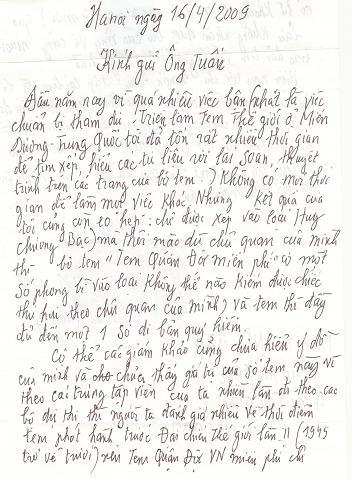 Hanoi ngày 16/4/2009
Kính gửi Ông Tuấn
Đầu năm nay vì quá nhiều việc bận (nhất là việc
chuẩn bị tham dự Triển lãm Tem Thế giới ở
Dương - Trung Quốc tôi đã tốn rất nhiều thời gian
để tìm xếp, hiểu các tư liệu rồi lại soạn, thuyết
trình trên các trang của bộ tem) không có mọi thời
gian để làm mọi việc khác. Nhưng kết quả của
tôi cũng còn eo hẹp: chỉ được xếp vào loại Huy
chương Bạc) mà thôi mặc dù chủ quan của mình
thì bộ tem "Tem Quân Đội miễn phí" có một
số phong bì vào loại không thể nào kiếm được chắc
thì thu theo chủ quan của mình) và tem thì đầy
đủ đến một 1 số di bản quý hiếm.
Có thể các giám khảo cũng chưa hiểu ý đồ
của mình và chưa thấy giá trị của số tem này vì
theo các trung tập viên của ta nhiều lần đi theo các
bộ dự thi thì người ta đánh giá nhiều về thời điểm
tem phát hành trước Đại chiến thế giới lần II (1945
trở về trước) nên Tem Quân Đội VN miễn phí chỉ